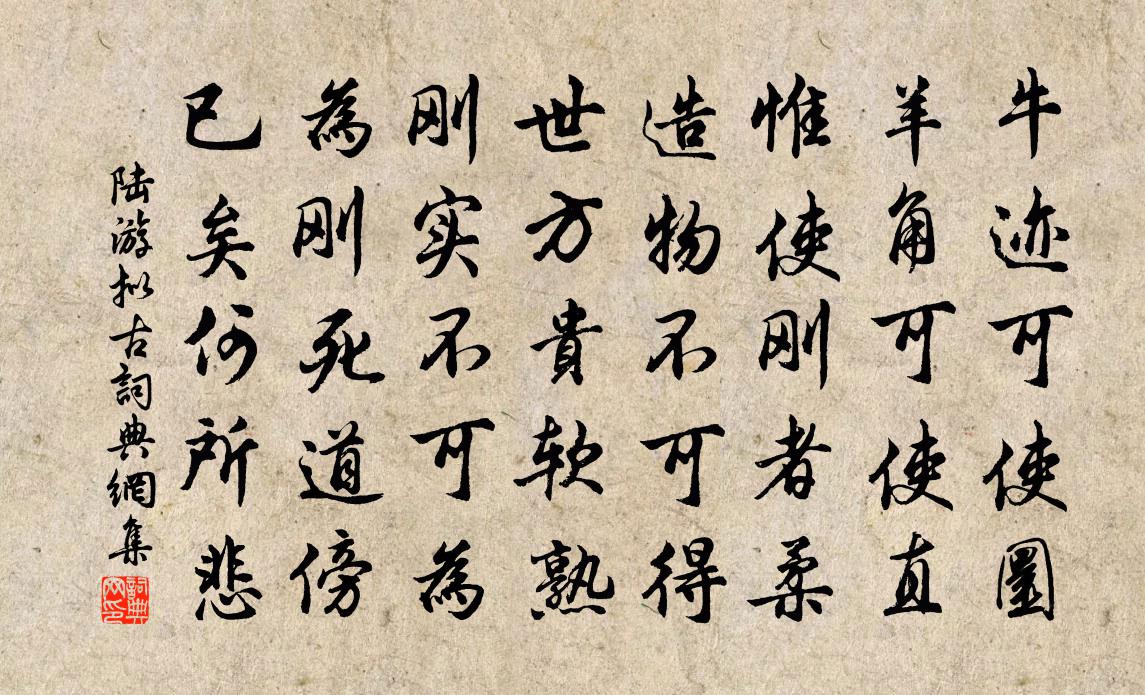 牛迹可使圜
羊角可使直
惟使刚者柔
造物不可得
世方貴软熟
刚实不可為
為刚死道傍
已矣何所悲
陆游拟古詞典網集
詞典
网印